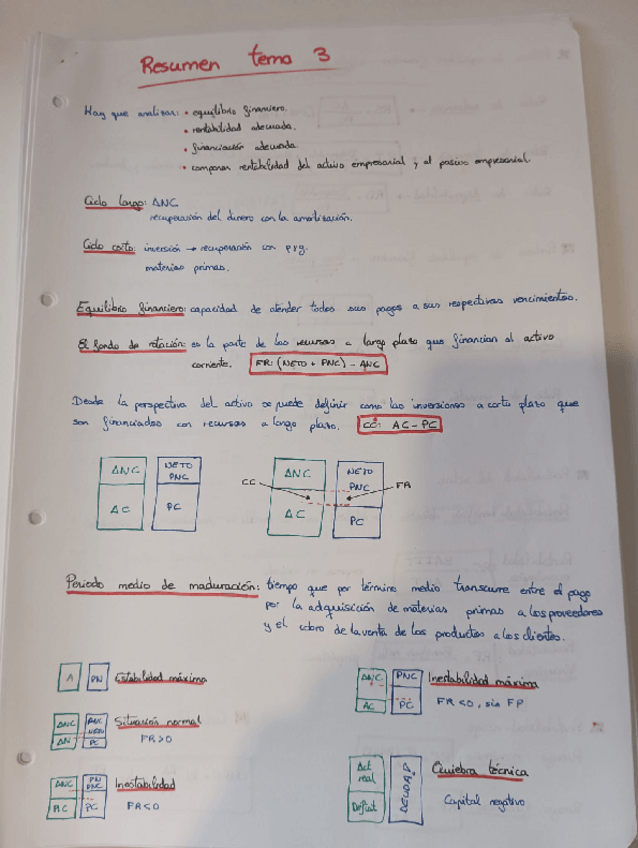 Resumen tema 3
Hay que analizar: • equilibrio financiero.
• rentabilidad adecuada.
• financiación adecuada.
• comparar rentabilidad del activo empresarial y al pasivo empresarial.
Ciclo largo: ANC
recuperación del dinero con la amortización.
Ciclo corto: inversión → recuperación con pyg.
materias primas.
Equilibrio financiero: capacidad de atender todos sus pagos a sus respectivos vencimientos.
El fondo de rotación: es la parte de los recursos a largo plazo que financian al activo
corriente. FR: (NETO + PNC) - ANC
Desde la perspectiva del activo se puede definir como las inversiones a corto plazo que
son financiadas con recursos a largo plazo. CC: AC - PC
ANC NETO PNC
AC PC
ANC NETO PNC
CC FR
AC PC
Periodo medio de maduración: tiempo que por término medio transcurre entre el pago
por la adquisición de materias primas a los proveedores
y el cobro de la venta de los productos a los clientes.
A PN Estabilidad máxima
ANC PNC Inestabilidad máxima
AC PC FR<0, sin FP
ANC PNC NETO Situación normal
AN PC FR>0
Act real DEUDAS Quiebra técnica
Deficit Capital negativo
ANC PN PNC Inestabilidad
AC PC FR<0